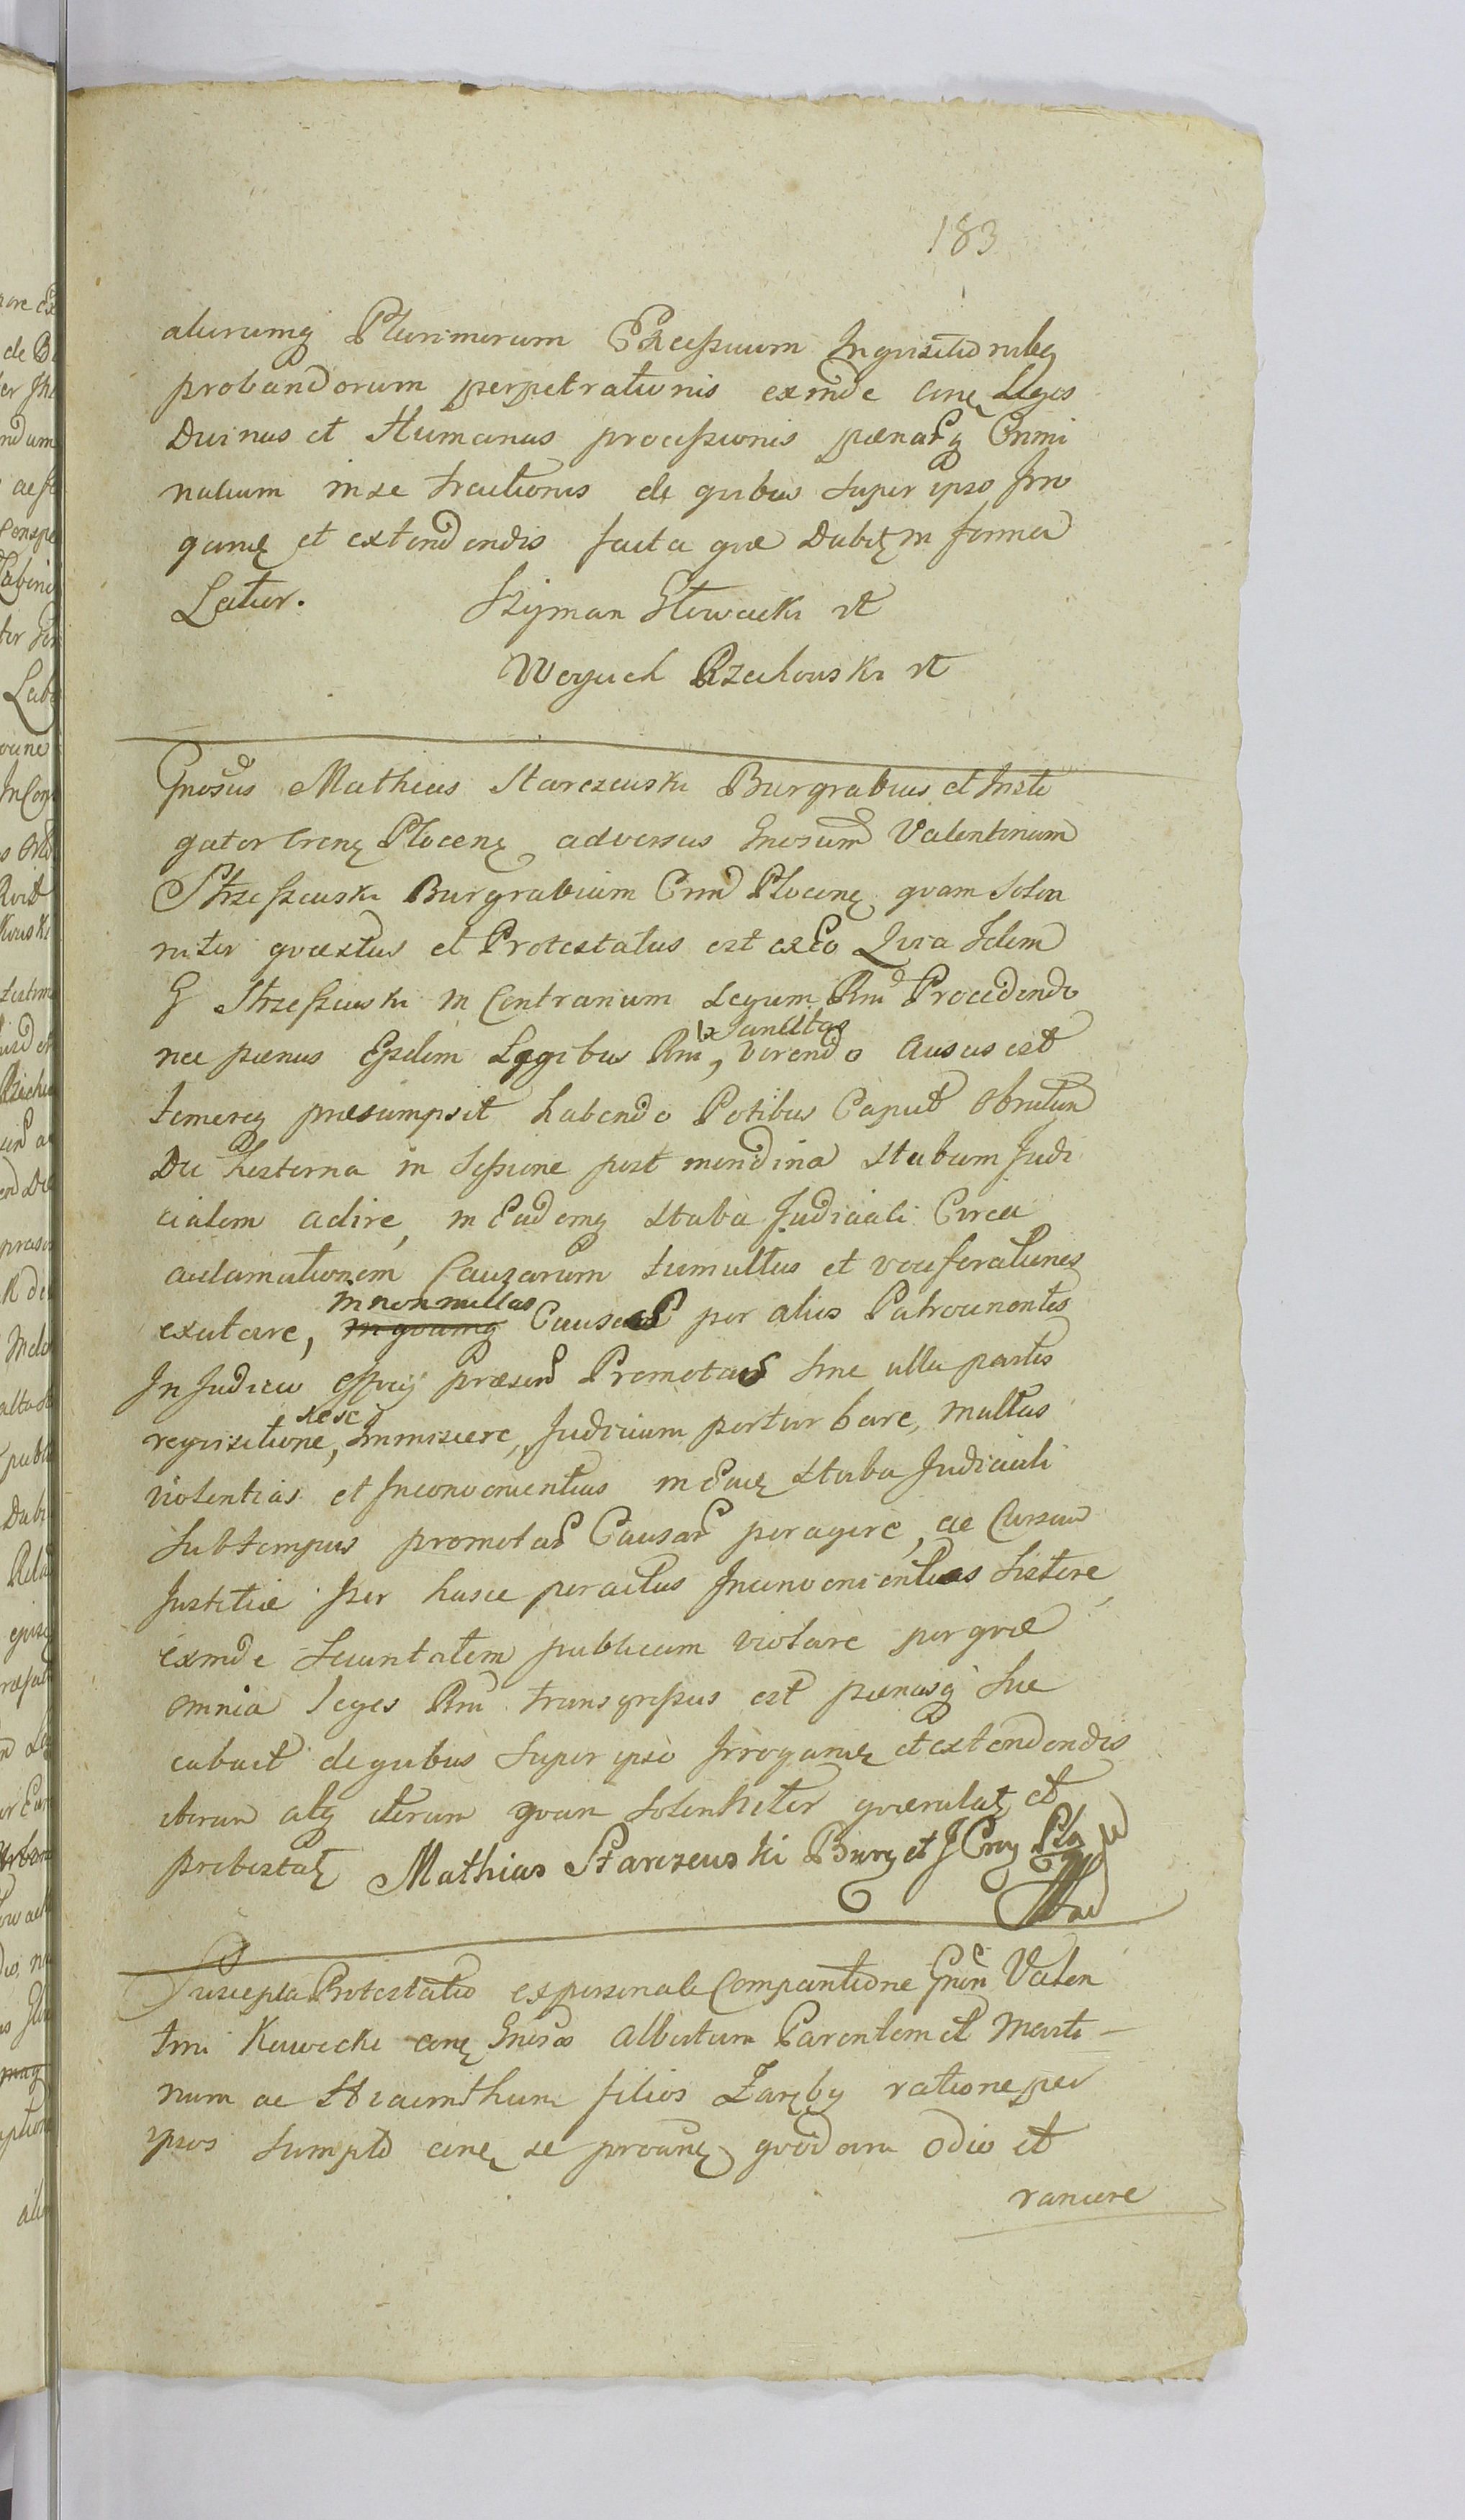 183
aliorumq Plurimorum Excessuum Inquisitionibq
probandorum perpetrationis exinde cone Leges
Divinas et Humanas processionis paenarq Crimi
nalium in se tractionis de quibus super ipso Irro
ganq et extendendis facta quae Dabit in forma
Latior. Szyman Głowacki mp
Woyciech Rzechowski mp
Gnosus Mathias Starczewski Burgrabius et Insti
gator Crenę Plocenę adversus Gnosum Valentinum
Strzeszewski Burgrabium Crim Plocenę quam Solen
niter quaestus et Protestatus est ex Eo Quia Idem
G Strzeszewski in Contrarium Legum Rni Procedendo
nec paenas Eisdem Legibus Rni, Sancitas verendo Ausus est
temereq praesumpsit habendo Potibus Caput Obrutum
Die hesterna in Sessione post meridina Stubam Judi
cialem adire, in Eademq Stuba Judiciali Circa
aclamationem Causarum tumultus et vociferationes
excitare, in nonnullas Causas per alios Patrocinantes
In Judicio Officij praesen Promotas Sine ulla partis
requisitione, sese Immiscere, Judicium perturbare, multas
violentias et Inconvenientias in Eadę Stuba Judiciali
Sub tempus promotar Causar peragere, ac Cursum
Justitiae per hasce peractas Inconvenientias Sistere,
exinde Securitatem publicam violare per quae
omnia leges Rni transgressus est paenasq Suc
cubuit de quibus Super ipso Irroganę et extendendis
iterum atq iterum quam Solenniter quaerulat et
protestat Mathias Starczewski Burg et J Crę Plo
Suscepta Protestatio ex personali Comparitione Gnoři Valen
tini Kawecki cone Gnosos Albertum Parentem et Marti-
num ac Hiacinthum filios Zaręby ratione per
ipsos Sumpto cone se proanę quodam Odio et
rancore